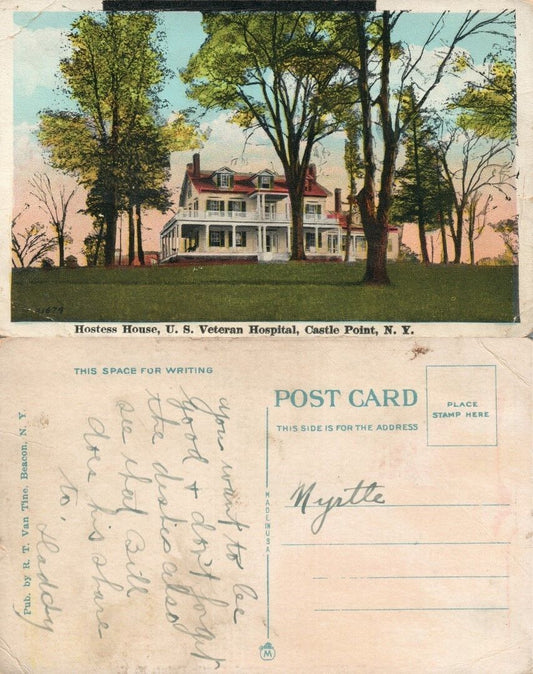 11674
Hostess House, U. S. Veteran Hospital, Castle Point, N. Y.
THIS SPACE FOR WRITING
you want to be
good & don't forget
the dishes also
see that Bill
does his share
to. Daddy
Pub. by R. T. Van Tine, Beacon, N. Y.
MADE IN USA
M
POST CARD
THIS SIDE IS FOR THE ADDRESS
PLACE
STAMP HERE
Myrtle